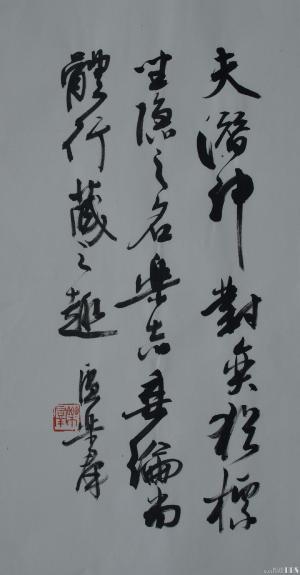 夫潛神對奕猶標
坐隱之名樂志垂綸尚
體行藏之趣